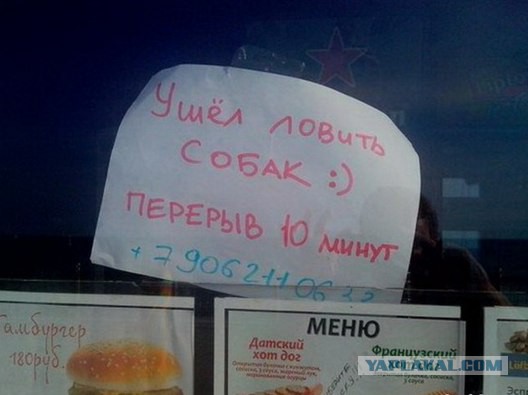 Ушёл ловить
СОБАК :)
ПЕРЕРЫВ 10 минут
+790621106
Гамбургер
180руб.
МЕНЮ
Датский
хот дог
Французский
хот дог
YAPLAKAL.COM